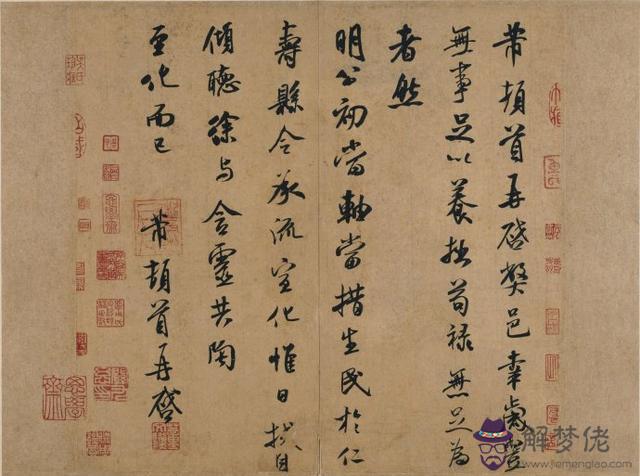 芾頓首再啓弊邑幸歲豐
無事足以養拙苟祿無足為
者然
明公初當軸當措生民於仁
壽縣令承流宣化惟日拭目
傾聽徐与含靈共陶
至化而已
芾頓首再啓
解梦佬
www.jiemenglao.com